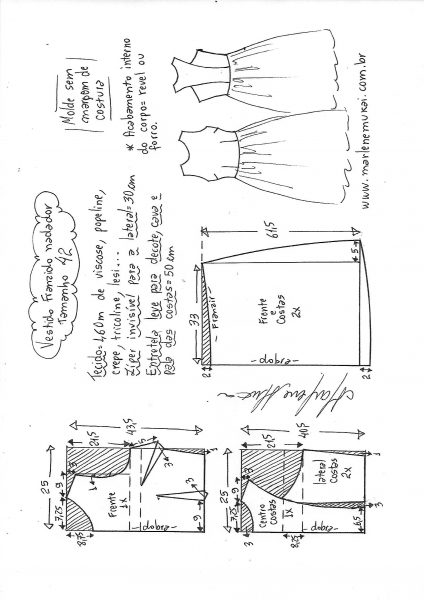 Vestido Franzido nadador
Tamanho 42
Molde sem
margem de
costura
* Acabamento interno
do corpo= revel ou
forro.
Tecido=1,60m de viscose, popeline,
crepe, tricoline, lesi...
Zíper invisível para a lateral=30cm
Entretela leve para decote, cava e
pala das costas=50cm
www.marlenemukai.com.br
25
7,25
9
8,75
3
1
21,5
43,5
Frente
1x
-dobra-
3
3
9
1
25
7,25
9
3
3
21,5
40,5
centro
costas
1x
lateral
costas
2x
-dobra-
8,25
6,5
3
1
61,5
33
- Franzir -
Frente
e
Costas
2x
-dobra-
5
2
2